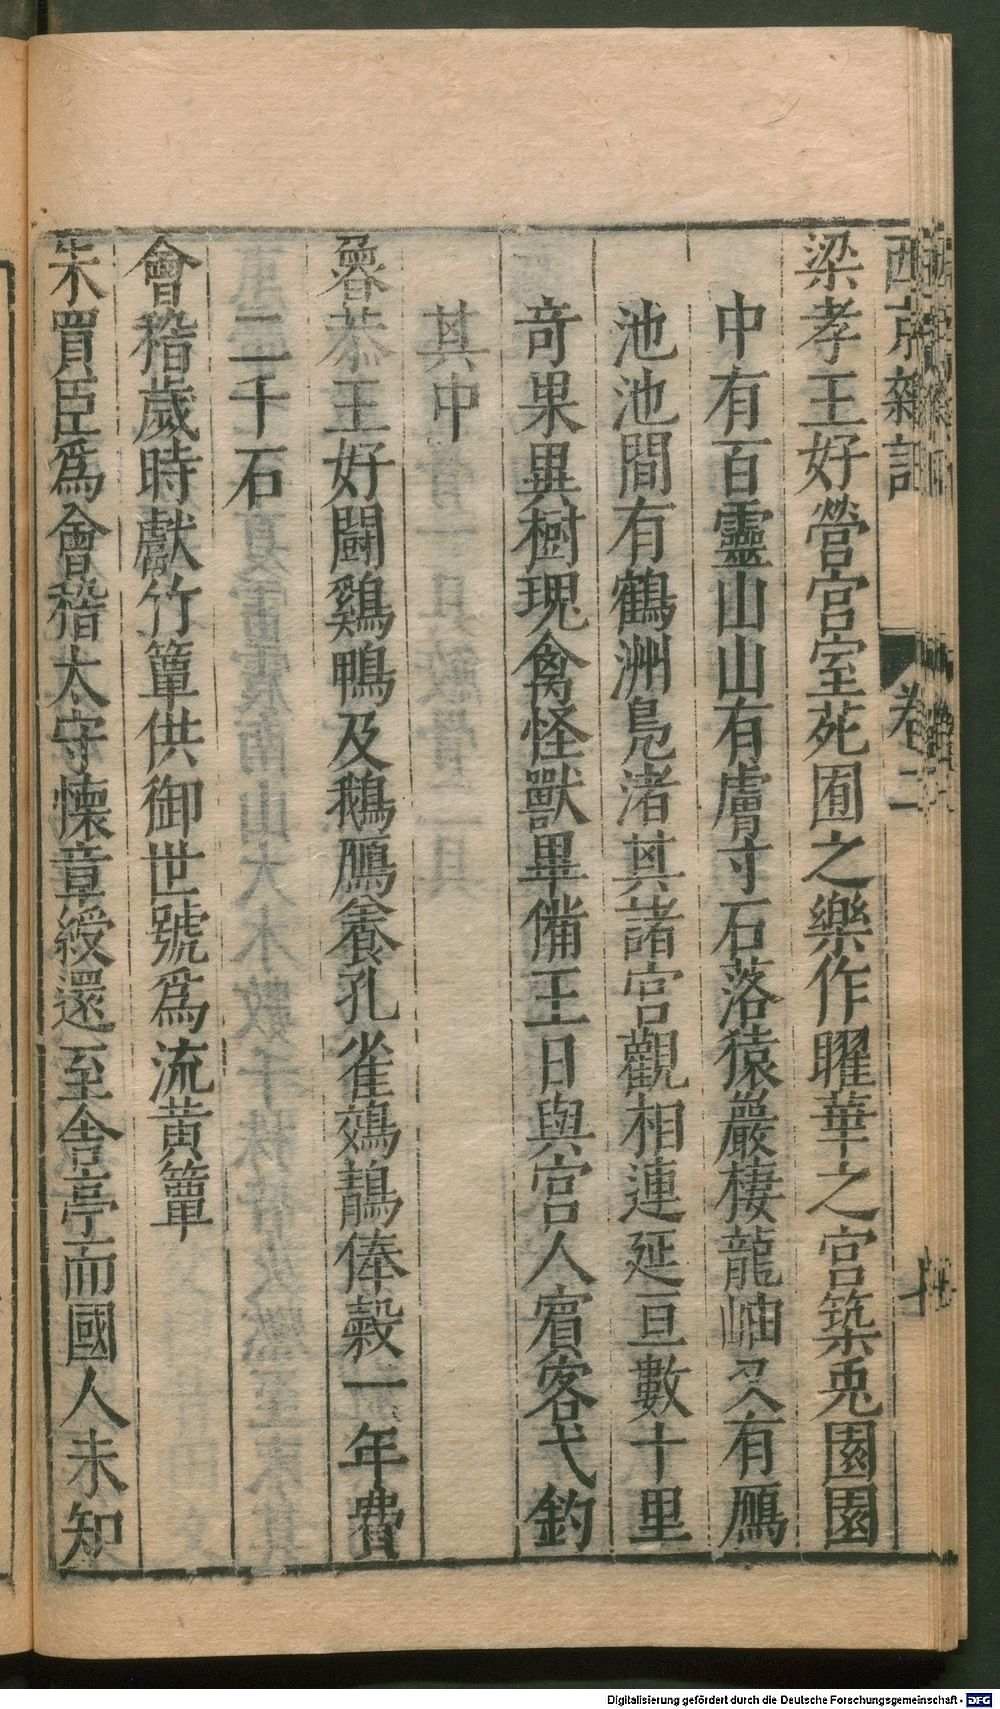 西京雜記 卷二 十
梁孝王好營宮室苑囿之樂作曜華之宮築兎園園
中有百靈山山有膚寸石落猿巖棲龍岫又有鴈
池池間有鶴洲鳧渚其諸宮觀相連延亘數十里
竒果異樹瑰禽怪獸畢備王日與宮人賓客弋釣
其中
魯恭王好鬪鷄鴨及鵝鴈養孔雀鵁鶄俸穀一年費
二千石
會稽歲時獻竹簟供御世號爲流黄簟
朱買臣爲會稽太守懷章綬還至舎亭而國人未知
Digitalisierung gefördert durch die Deutsche Forschungsgemeinschaft - DFG